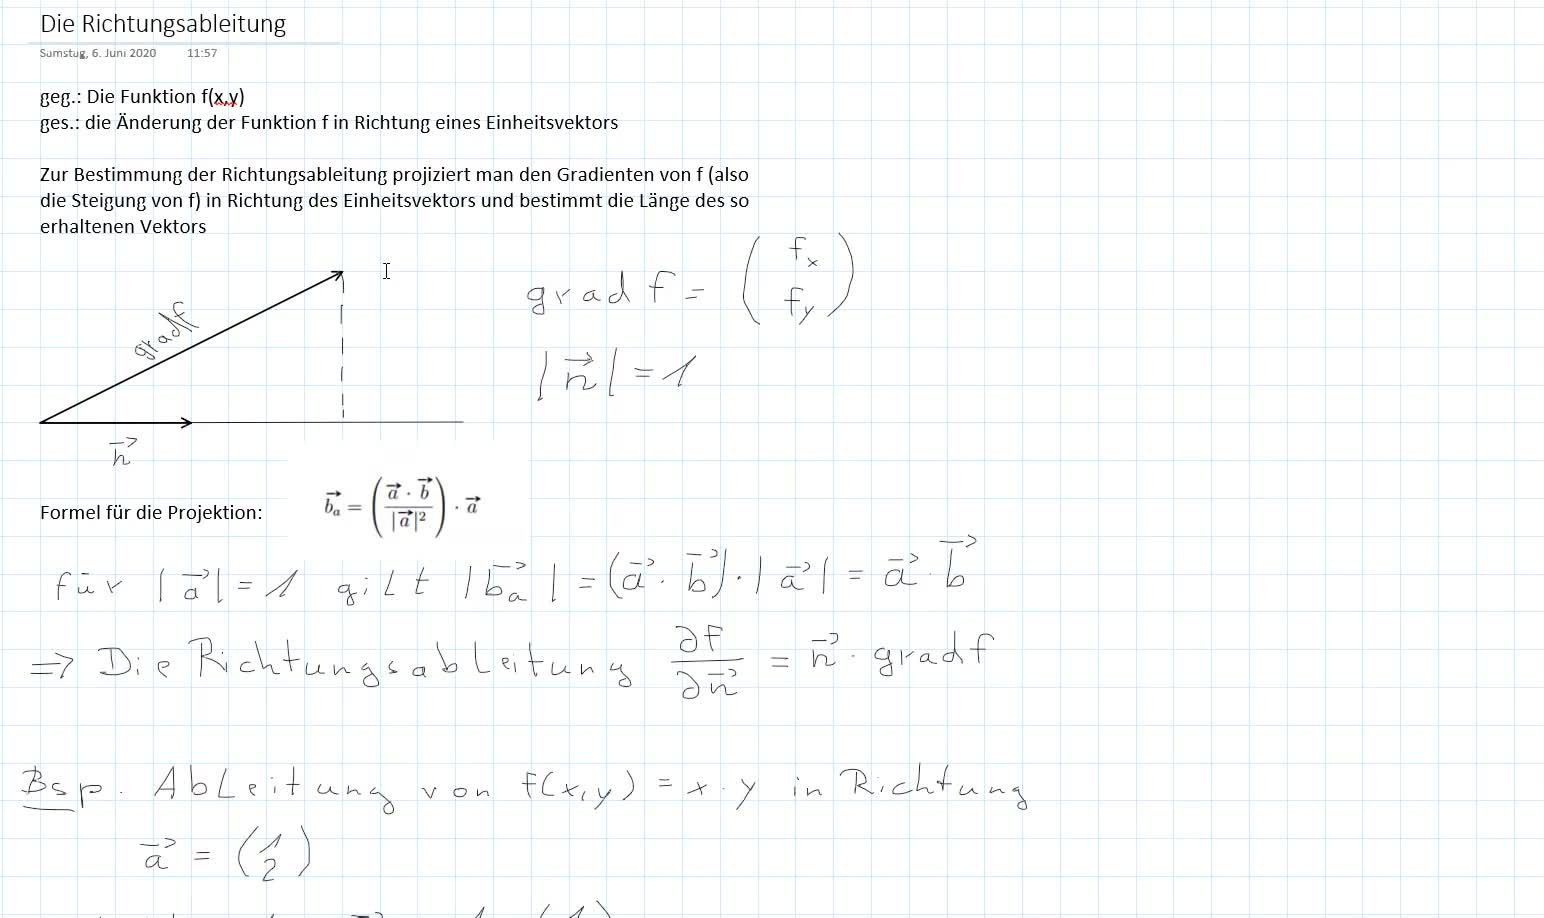 Die Richtungsableitung
Samstag, 6. Juni 2020 11:57
geg.: Die Funktion f(x,y)
ges.: die Änderung der Funktion f in Richtung eines Einheitsvektors
Zur Bestimmung der Richtungsableitung projiziert man den Gradienten von f (also
die Steigung von f) in Richtung des Einheitsvektors und bestimmt die Länge des so
erhaltenen Vektors
grad f = (f_x f_y)
gradf
|n⃗| = 1
n⃗
Formel für die Projektion: b⃗_a = (a⃗ · b⃗ / |a⃗|²) · a⃗
für |a⃗| = 1 gilt |b⃗_a| = (a⃗ · b⃗) · |a⃗| = a⃗ · b⃗
=> Die Richtungsableitung ∂f/∂n⃗ = n⃗ · gradf
Bsp. Ableitung von f(x,y) = x · y in Richtung
a⃗ = (1 2)